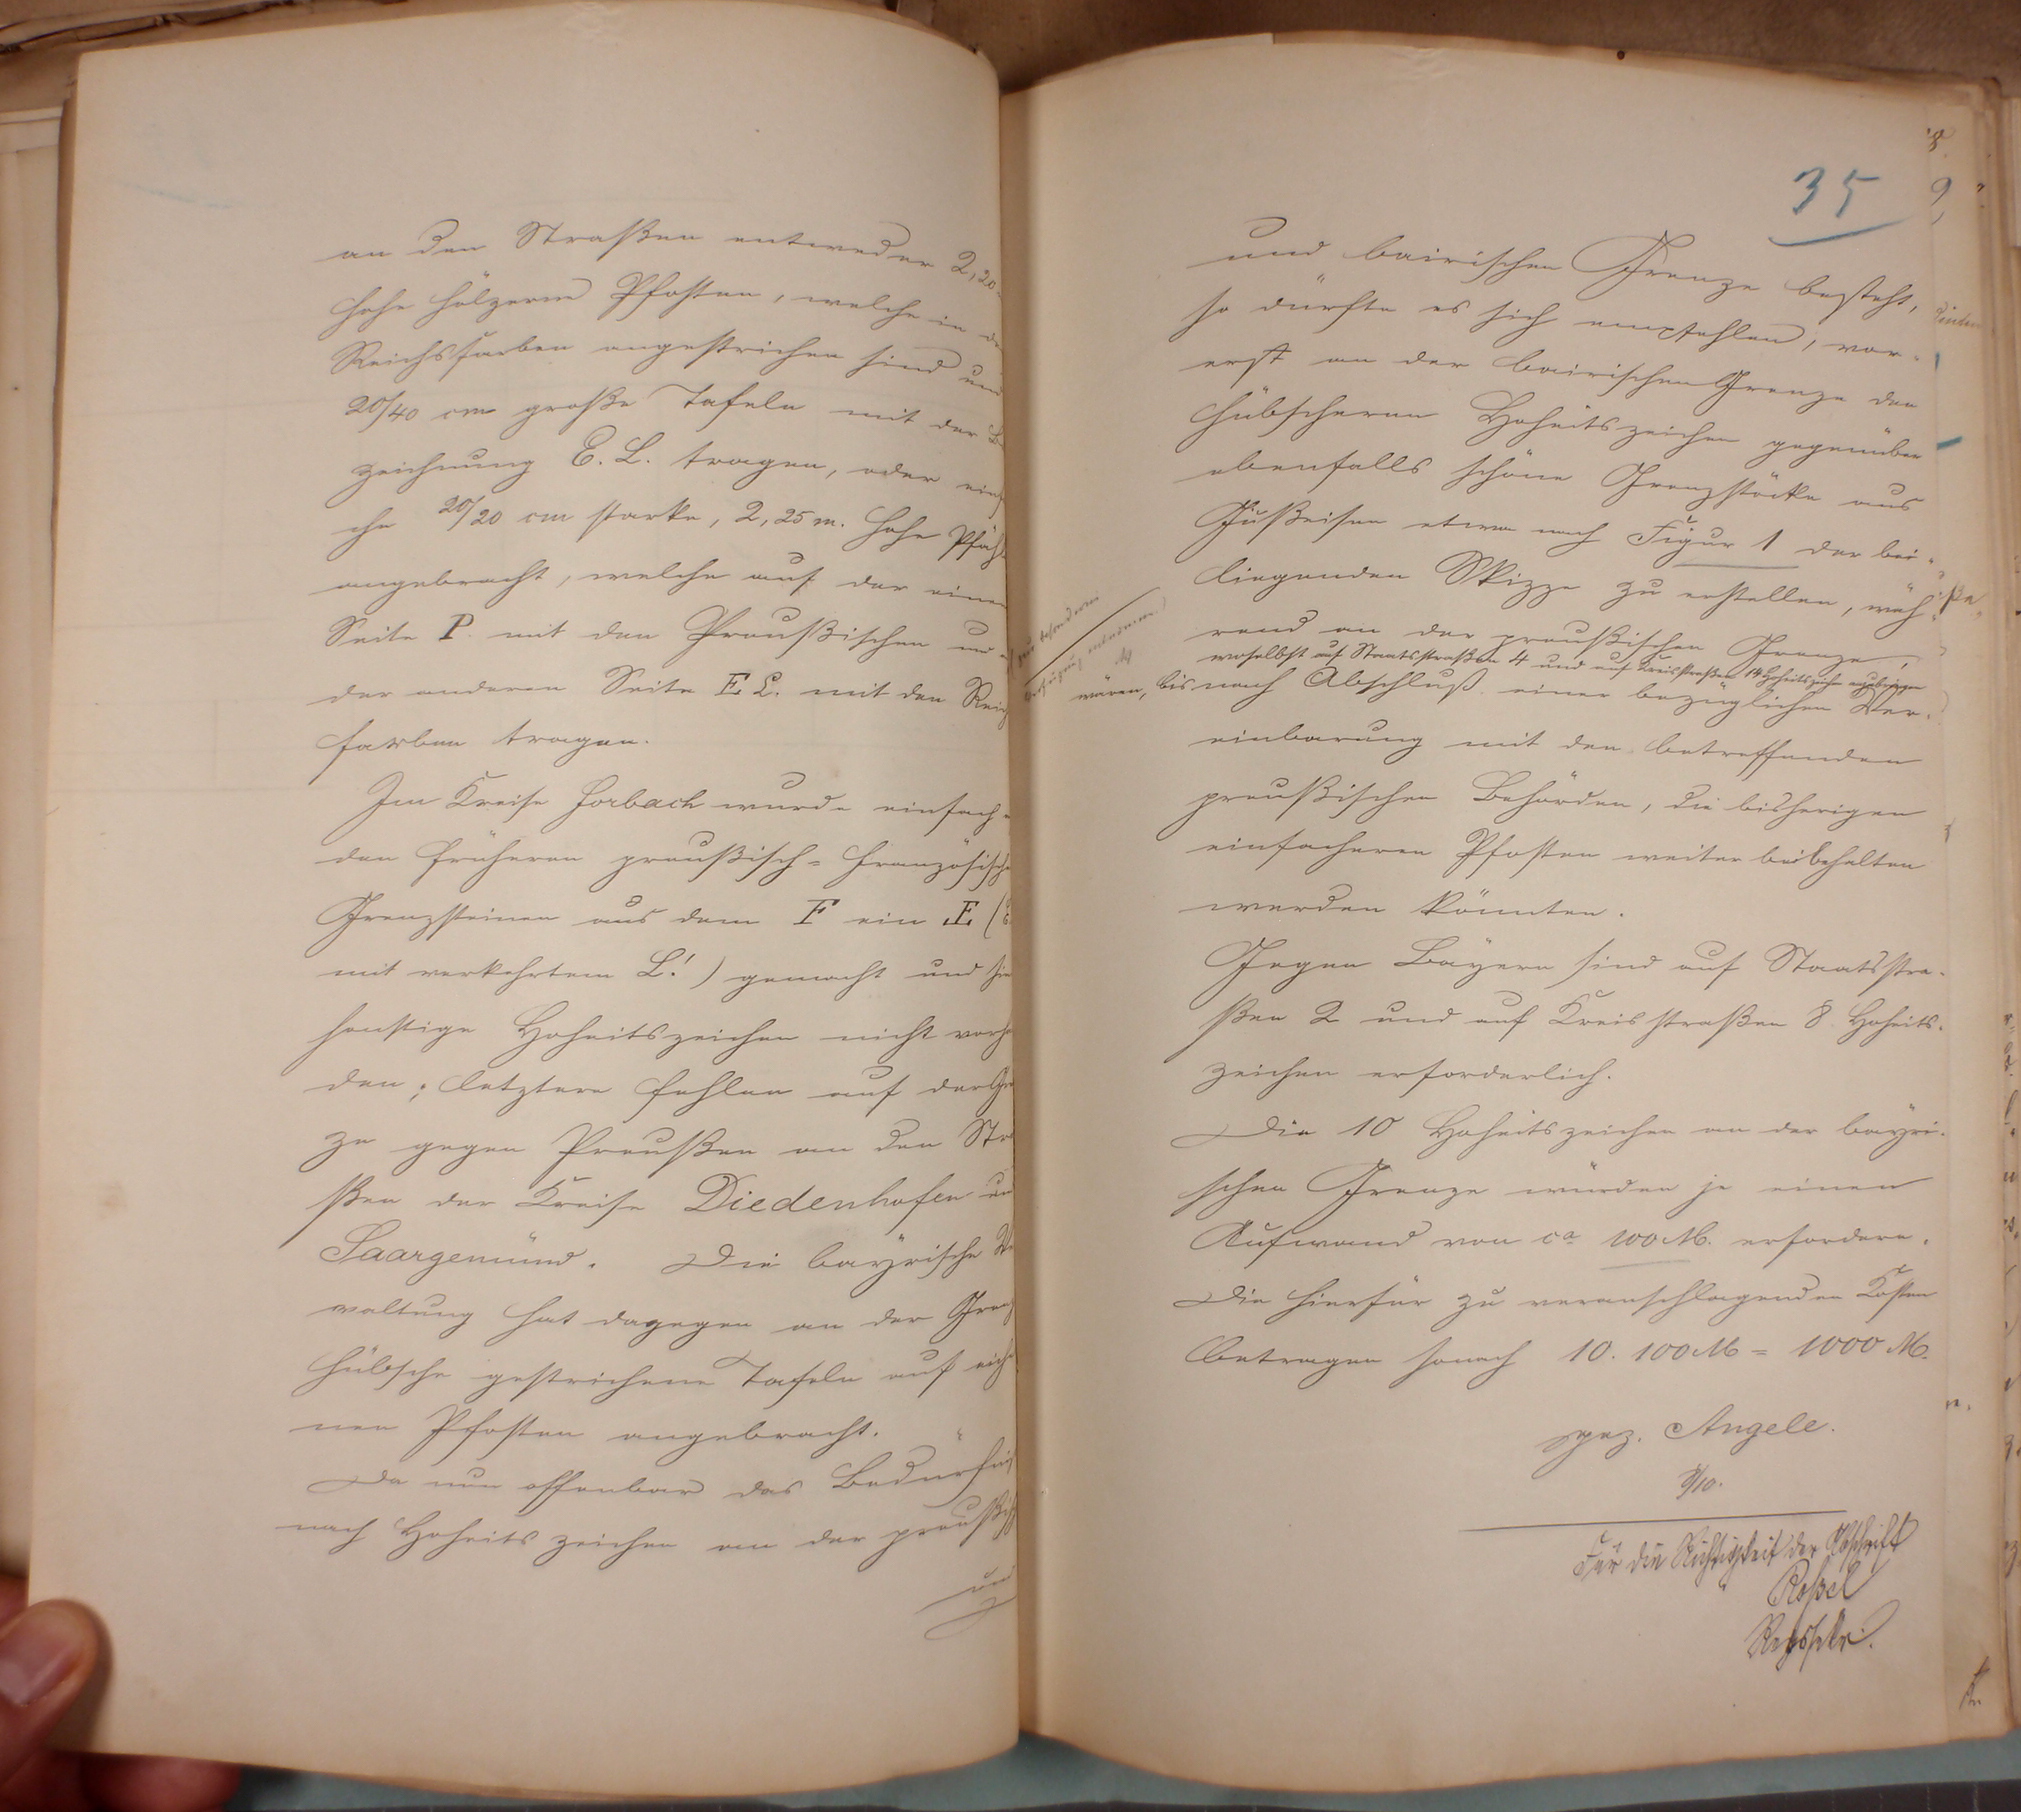 an den Straßen entweder 2,20
hohe hölzerne Pfosten, welche in
Reichsfarben angestrichen sind und
20/40 cm große Tafeln mit der Be
zeichnung E. L. tragen, oder einf
che 20/20 cm starke, 2,25 m. hohe Pfähl
angebracht, welche auf der einen
Seite P. mit den Preußischen und
der anderen Seite E. L. mit den Reich
farben tragen.
Im Kreise Forbach wurde einfach
den früheren preußisch-französische
Grenzsteinen aus dem F ein E (
mit verkehrtem L!) gemacht und
sonstige Hoheitszeichen nicht vorh
den; letztere fehlen auf der Gre
ze gegen Preußen an den Stra
ßen der Kreise Diedenhofen und
Saargemünd. Die bayrische Ve
waltung hat dagegen an der Grenz
hübsche gestrichene Tafeln auf eich
nen Pfosten angebracht.
Da nun offenbar das Bedürfniß
nach Hoheitszeichen an der preußisch
und
35
und bairischen Grenze besteht,
so dürfte es sich empfehlen, vor-
erst an der bairischen Grenze den
hübscheren Hoheitszeichen gegenüber
ebenfalls schöne Grenzstöcke aus
Gußeisen etwa nach Figur 1 der bei-
liegenden Skizze zu erstellen, wäh-
rend an der preußischen Grenze,
woselbst auf Staatsstraßen 4 und auf Kreisstraßen 14 Hoheitszeichen anzubringen
wären, bis nach Abschluß einer bezüglichen Ver-
einbarung mit den betreffenden
preußischen Behörden, die bisherigen
einfacheren Pfosten weiter beibehalten
werden könnten.
Gegen Bayern sind auf Staatsstra-
ßen 2 und auf Kreisstraßen 8 Hoheits-
zeichen erforderlich.
Die 10 Hoheitszeichen an der bayri-
schen Grenze würden je einen
Aufwand von ca 100 M. erfordern.
Die hierfür zu veranschlagenden Kosten
betragen sonach 10. 100 M = 1000 M.
gez. Angele.
3/10.
Für die Richtigkeit der Abschrift